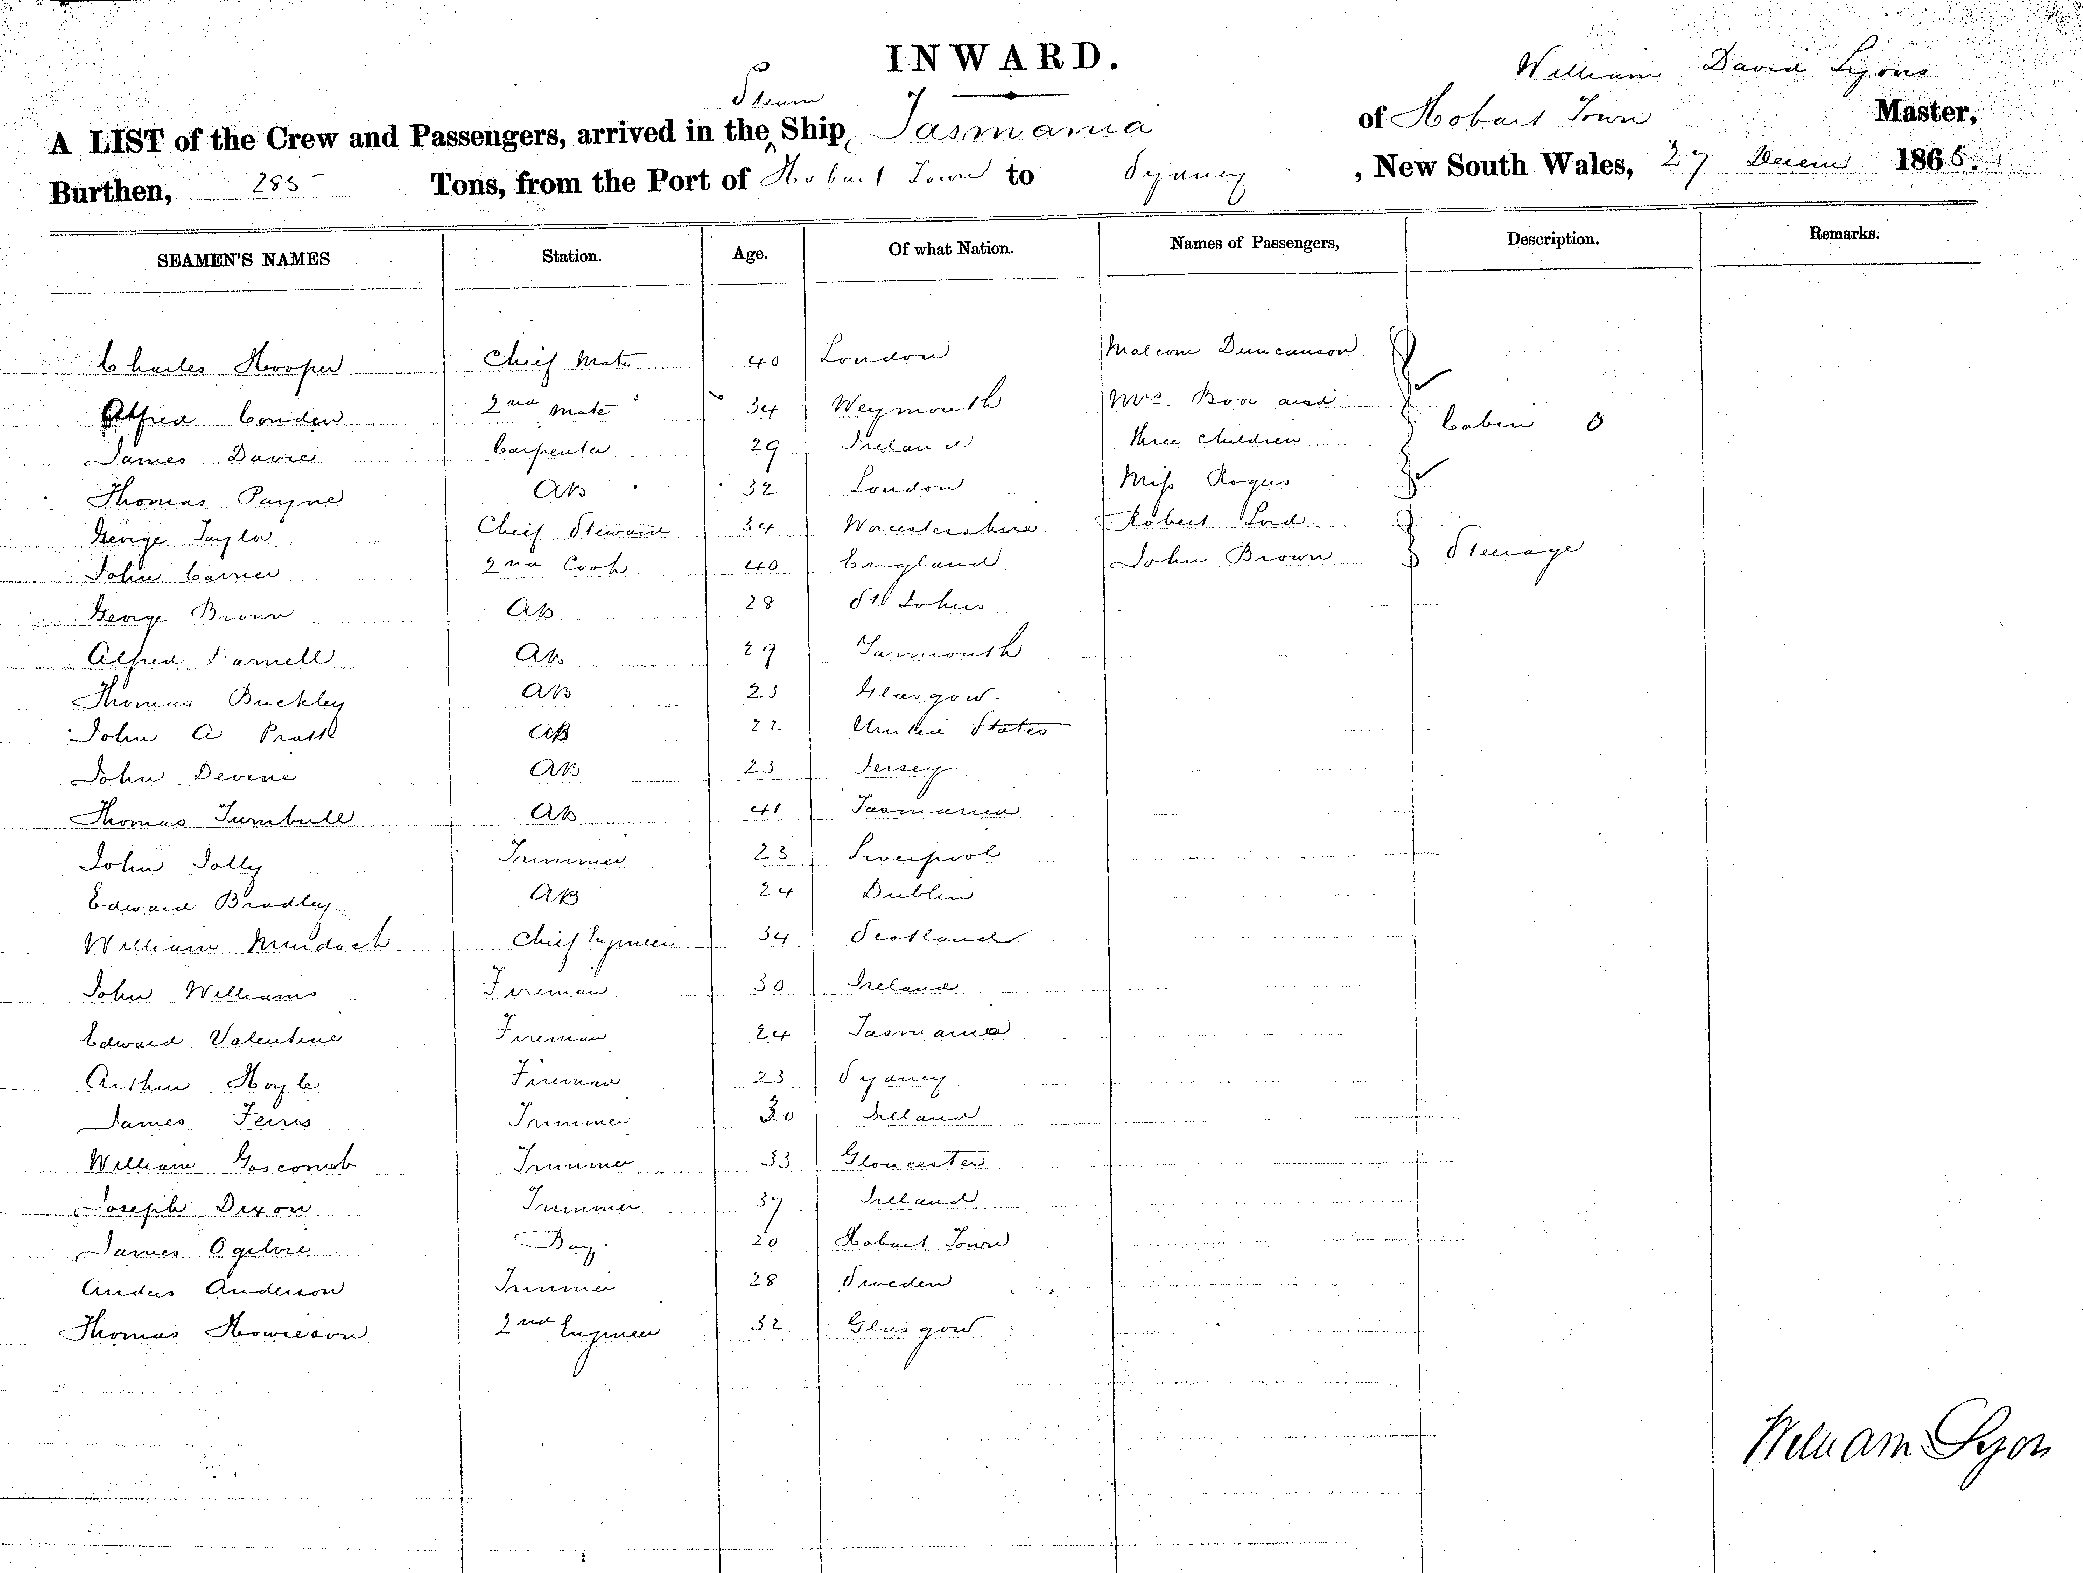 INWARD.
William David Lyons
A LIST of the Crew and Passengers, arrived in the Steam Ship, Tasmania of Hobart Town Master,
Burthen, 285 Tons, from the Port of Hobart Town to Sydney, New South Wales, 27 Decem 1865.
SEAMEN'S NAMES Station. Age. Of what Nation. Names of Passengers, Description. Remarks.
Charles Hooper Chief Mate 40 London Malcom Duncanson
Alfred Conden 2nd Mate 34 Weymouth Mrs. and
James Davie Carpenter 29 Ireland three children Cabin
Thomas Payne AB 32 London Miss Rogers
George Taylor Chief Steward 34 Worcestershire Robert Lord
John 2nd Cook 40 England John Brown Steerage
George Brown AB 28 St Johns
Alfred Parnell AB 29 Yarmouth
Thomas Buckley AB 23 Glasgow
John A Pratt AB 22 United States
John Devine AB 23 Jersey
Thomas Turnbull AB 41 Tasmania
John Jolly Trimmer 23 Liverpool
Edward Bradley AB 24 Dublin
William Murdoch Chief Engineer 34 Scotland
John Williams Fireman 30 Ireland
Edward Valentine Fireman 24 Tasmania
Arthur Hoyle Fireman 23 Sydney
James Ferris Trimmer 30 Ireland
William Goscomb Trimmer 33 Gloucester
Joseph Dixon Trimmer 37 Ireland
James Ogilvie Boy 20 Hobart Town
Anders Anderson Trimmer 28 Sweden
Thomas Howieson 2nd Engineer 32 Glasgow
William Lyon